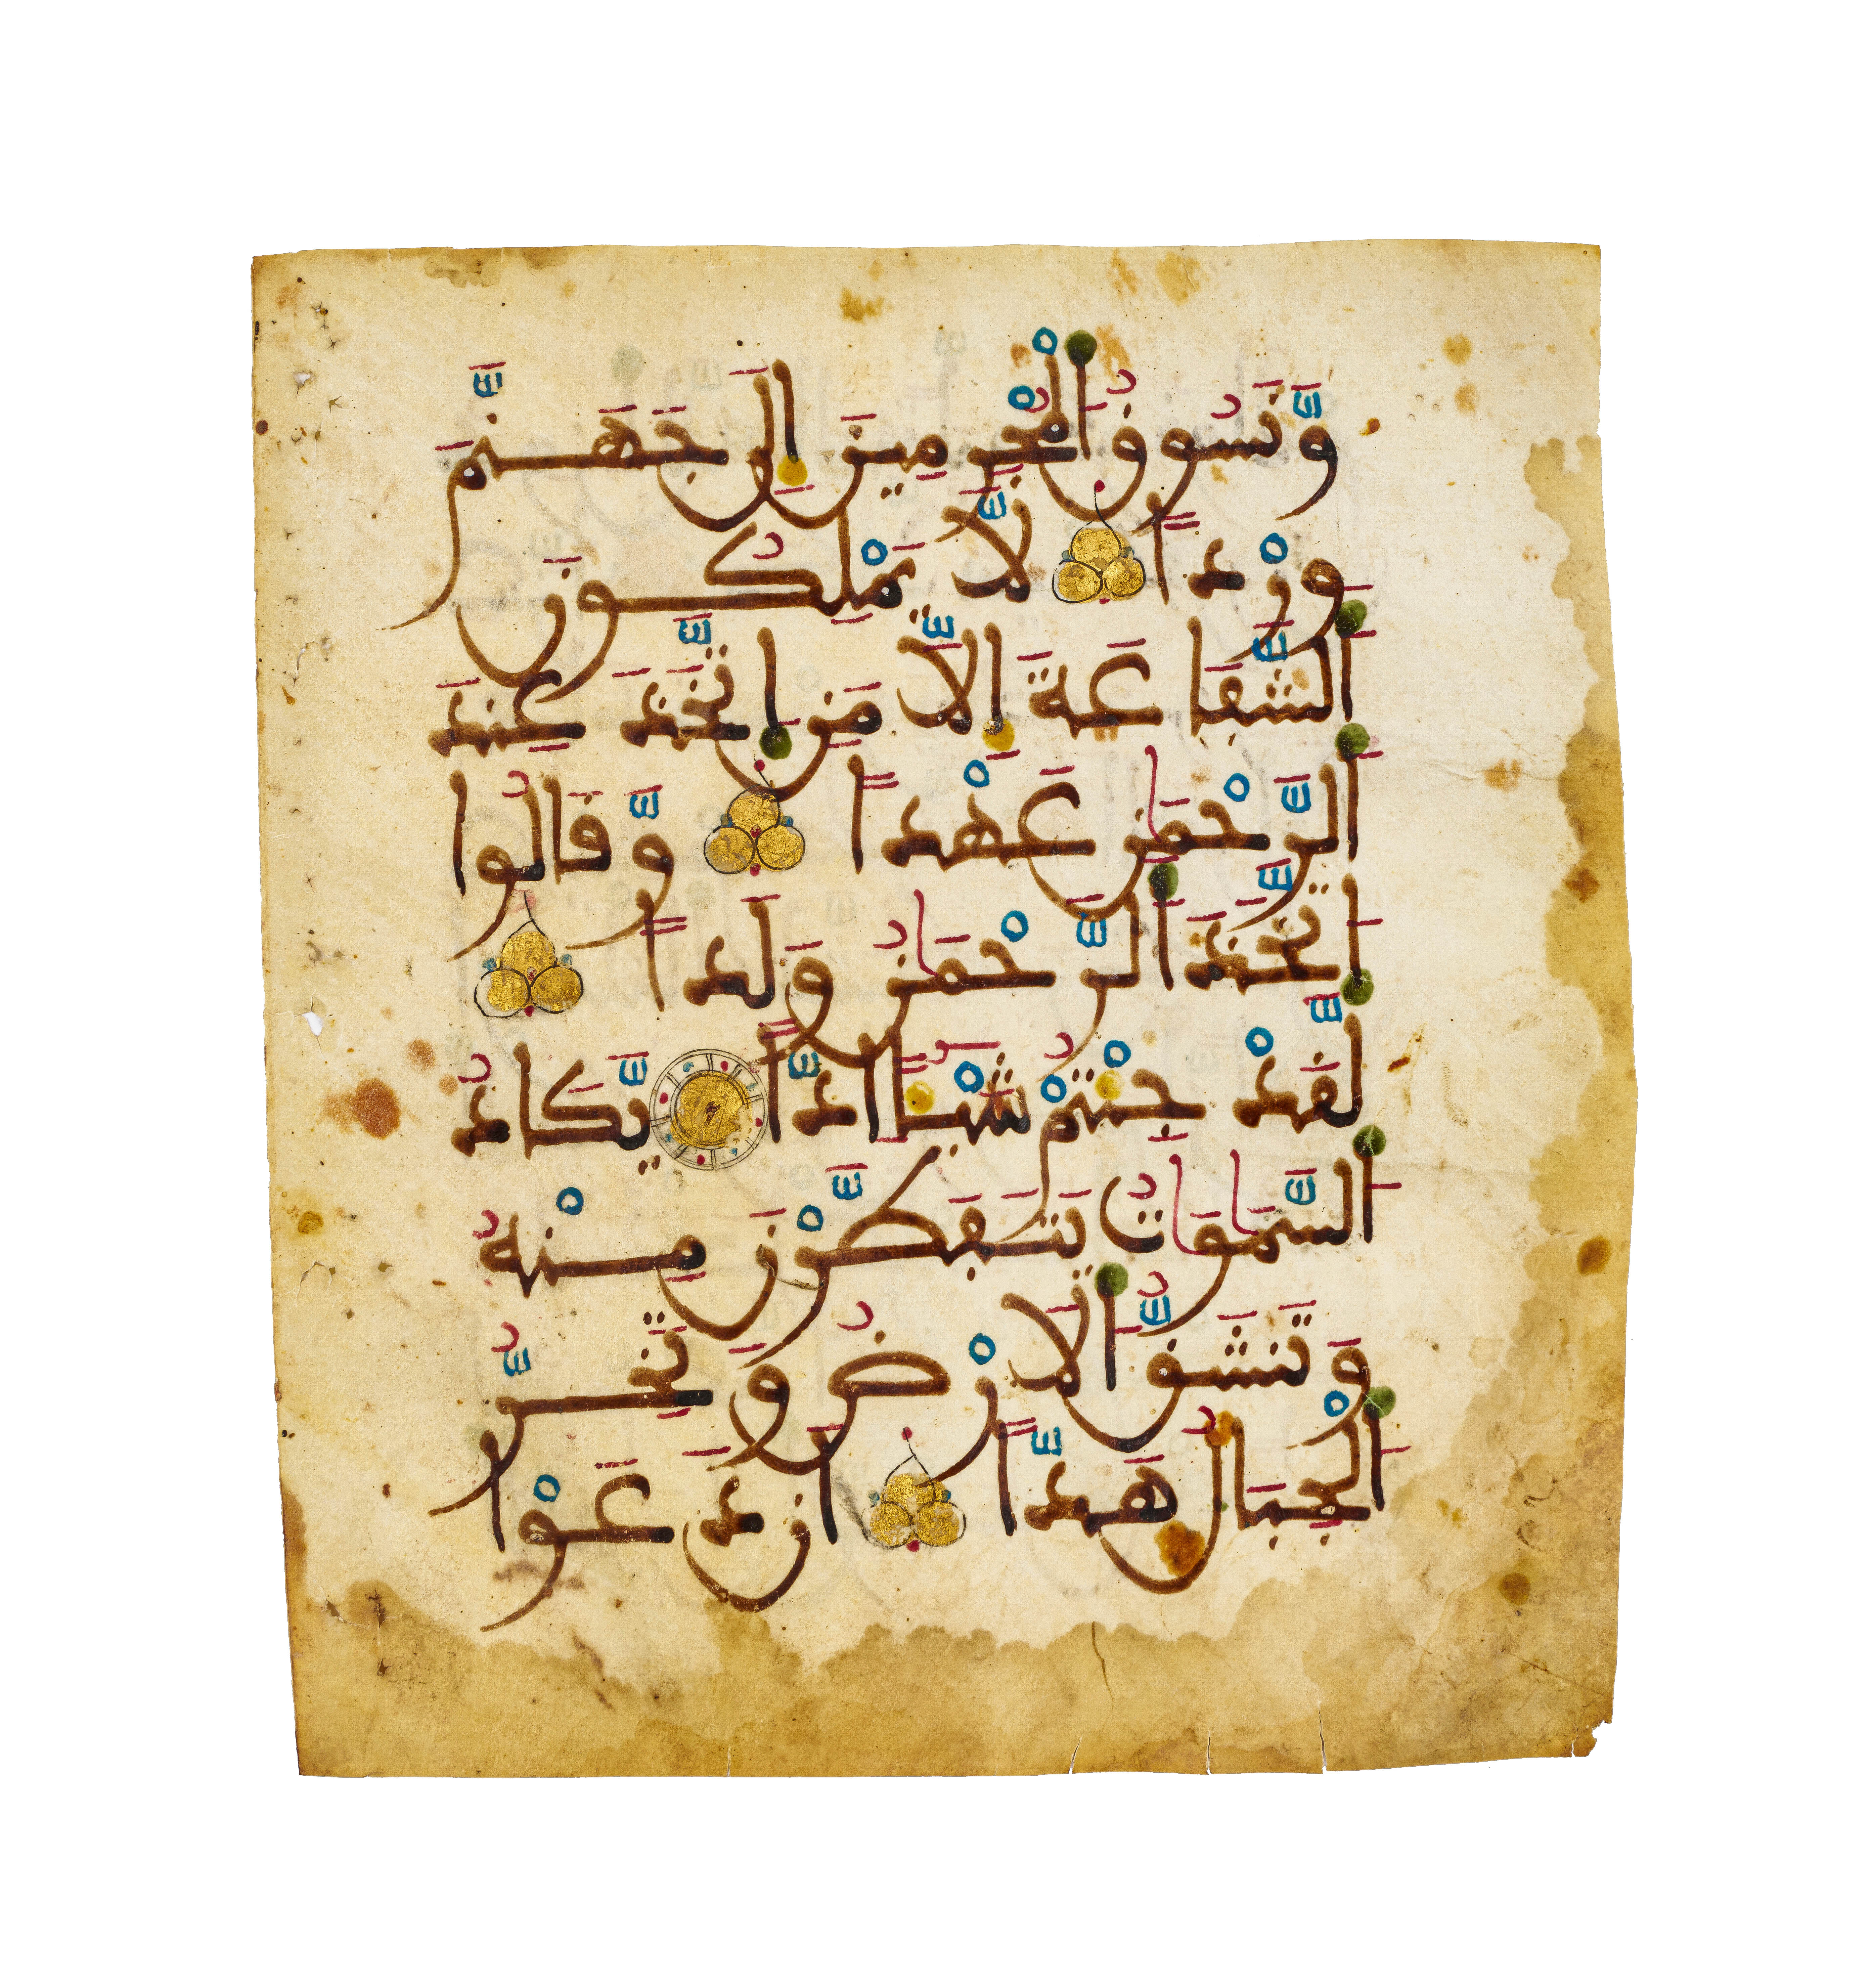 وَّنَسُوقُ الْمُجْرِمِينَ إِلَىٰ جَهَنَّمَ
وِرْدًا لَّا يَمْلِكُونَ
الشَّفَاعَةَ إِلَّا مَنِ اتَّخَذَ عِندَ
الرَّحْمَٰنِ عَهْدًا وَّقَالُوا
اتَّخَذَ الرَّحْمَٰنُ وَلَدًا
لَّقَدْ جِئْتُمْ شَيْـًٔا إِدًّا يَّكَادُ
السَّمَٰوَٰتُ يَتَفَطَّرْنَ مِنْهُ
وَتَنشَقُّ الْأَرْضُ وَتَخِرُّ
الْجِبَالُ هَدًّا أَن دَعَوْا